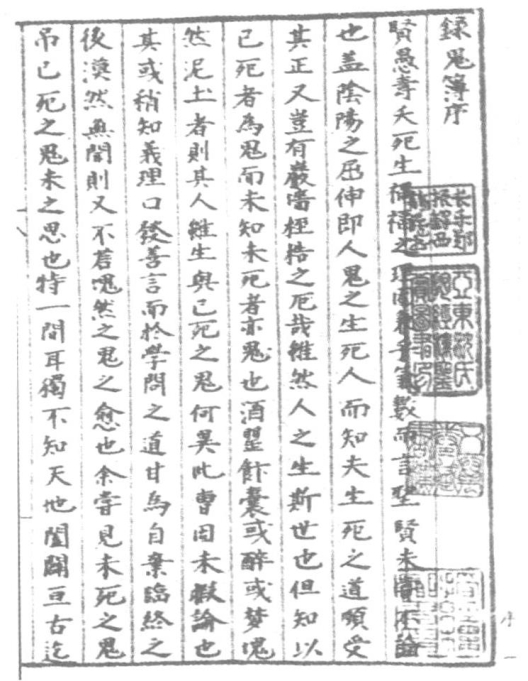 錄鬼簿序
賢愚壽夭死生禍福之理固兼乎氣數而言聖賢未嘗不論
也蓋陰陽之屈伸即人鬼之生死人而知夫生死之道順受
其正又豈有巖墻桎梏之厄哉雖然人之生斯世也但知以
已死者為鬼而未知未死者亦鬼也酒罌飰囊或醉或夢塊
然泥土者則其人雖生與已死之鬼何異此曹固未暇論也
其或稍知義理口發善言而於學問之道甘為自棄臨終之
後漠然無聞則又不若塊然之鬼之愈也余嘗見未死之鬼
吊已死之鬼未之思也特一間耳獨不知天地闔闢亘古迄
亞東沈氏
抱經樓鑒
賞圖書印